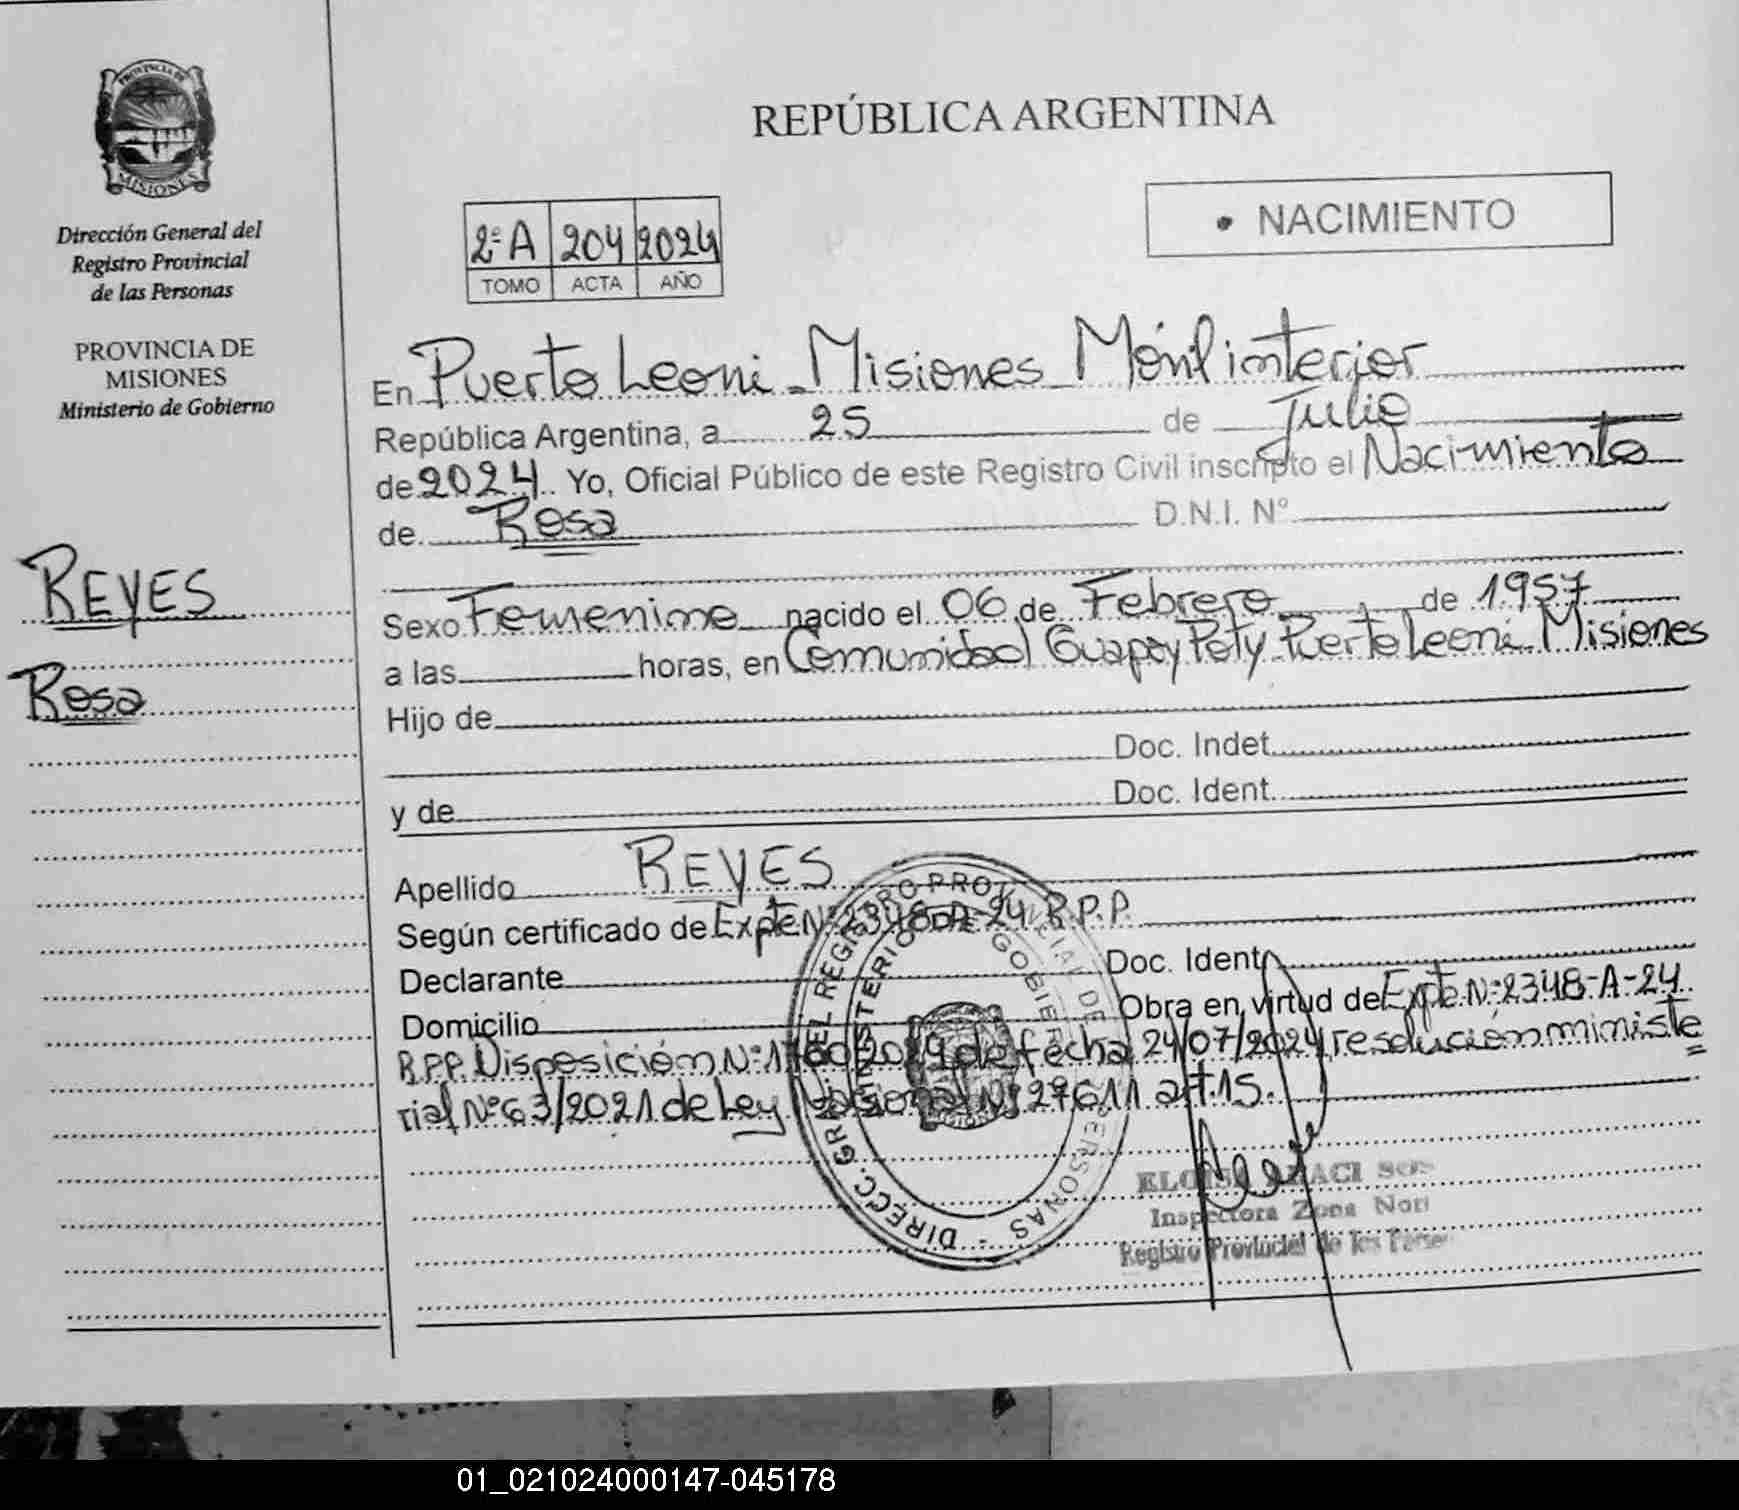 PROVINCIA DE
MISIONES
Dirección General del
Registro Provincial
de las Personas
PROVINCIA DE
MISIONES
Ministerio de Gobierno
REYES
Rosa
REPÚBLICA ARGENTINA
2º A 204 2024
TOMO ACTA AÑO
• NACIMIENTO
En Puerto Leoni - Misiones Móvil interior
República Argentina, a 25 de Julio
de 2024. Yo, Oficial Público de este Registro Civil inscripto el Nacimiento
de Rosa D.N.I. Nº
Sexo Femenino nacido el 06 de Febrero de 1957
a las horas, en Comunidad Guapoy Poty Puerto Leoni - Misiones
Hijo de
Doc. Indet.
y de Doc. Ident.
Apellido REYES
Según certificado de Expte Nº 2348-A-24 R.P.P.
Declarante Doc. Ident.
Domicilio Obra en virtud de Expte Nº 2348-A-24
R.P.P. Disposición Nº de fecha 24/07/2024 resolución ministe
rial Nº 63/2021 de Ley Nacional Nº 27611 art. 15.
DIRECC. GRAL. DEL REGISTRO PROVINCIAL DE PERSONAS -
MINISTERIO DE GOBIERNO
Inspectora Zona
Registro Provincial de las
01_021024000147-045178